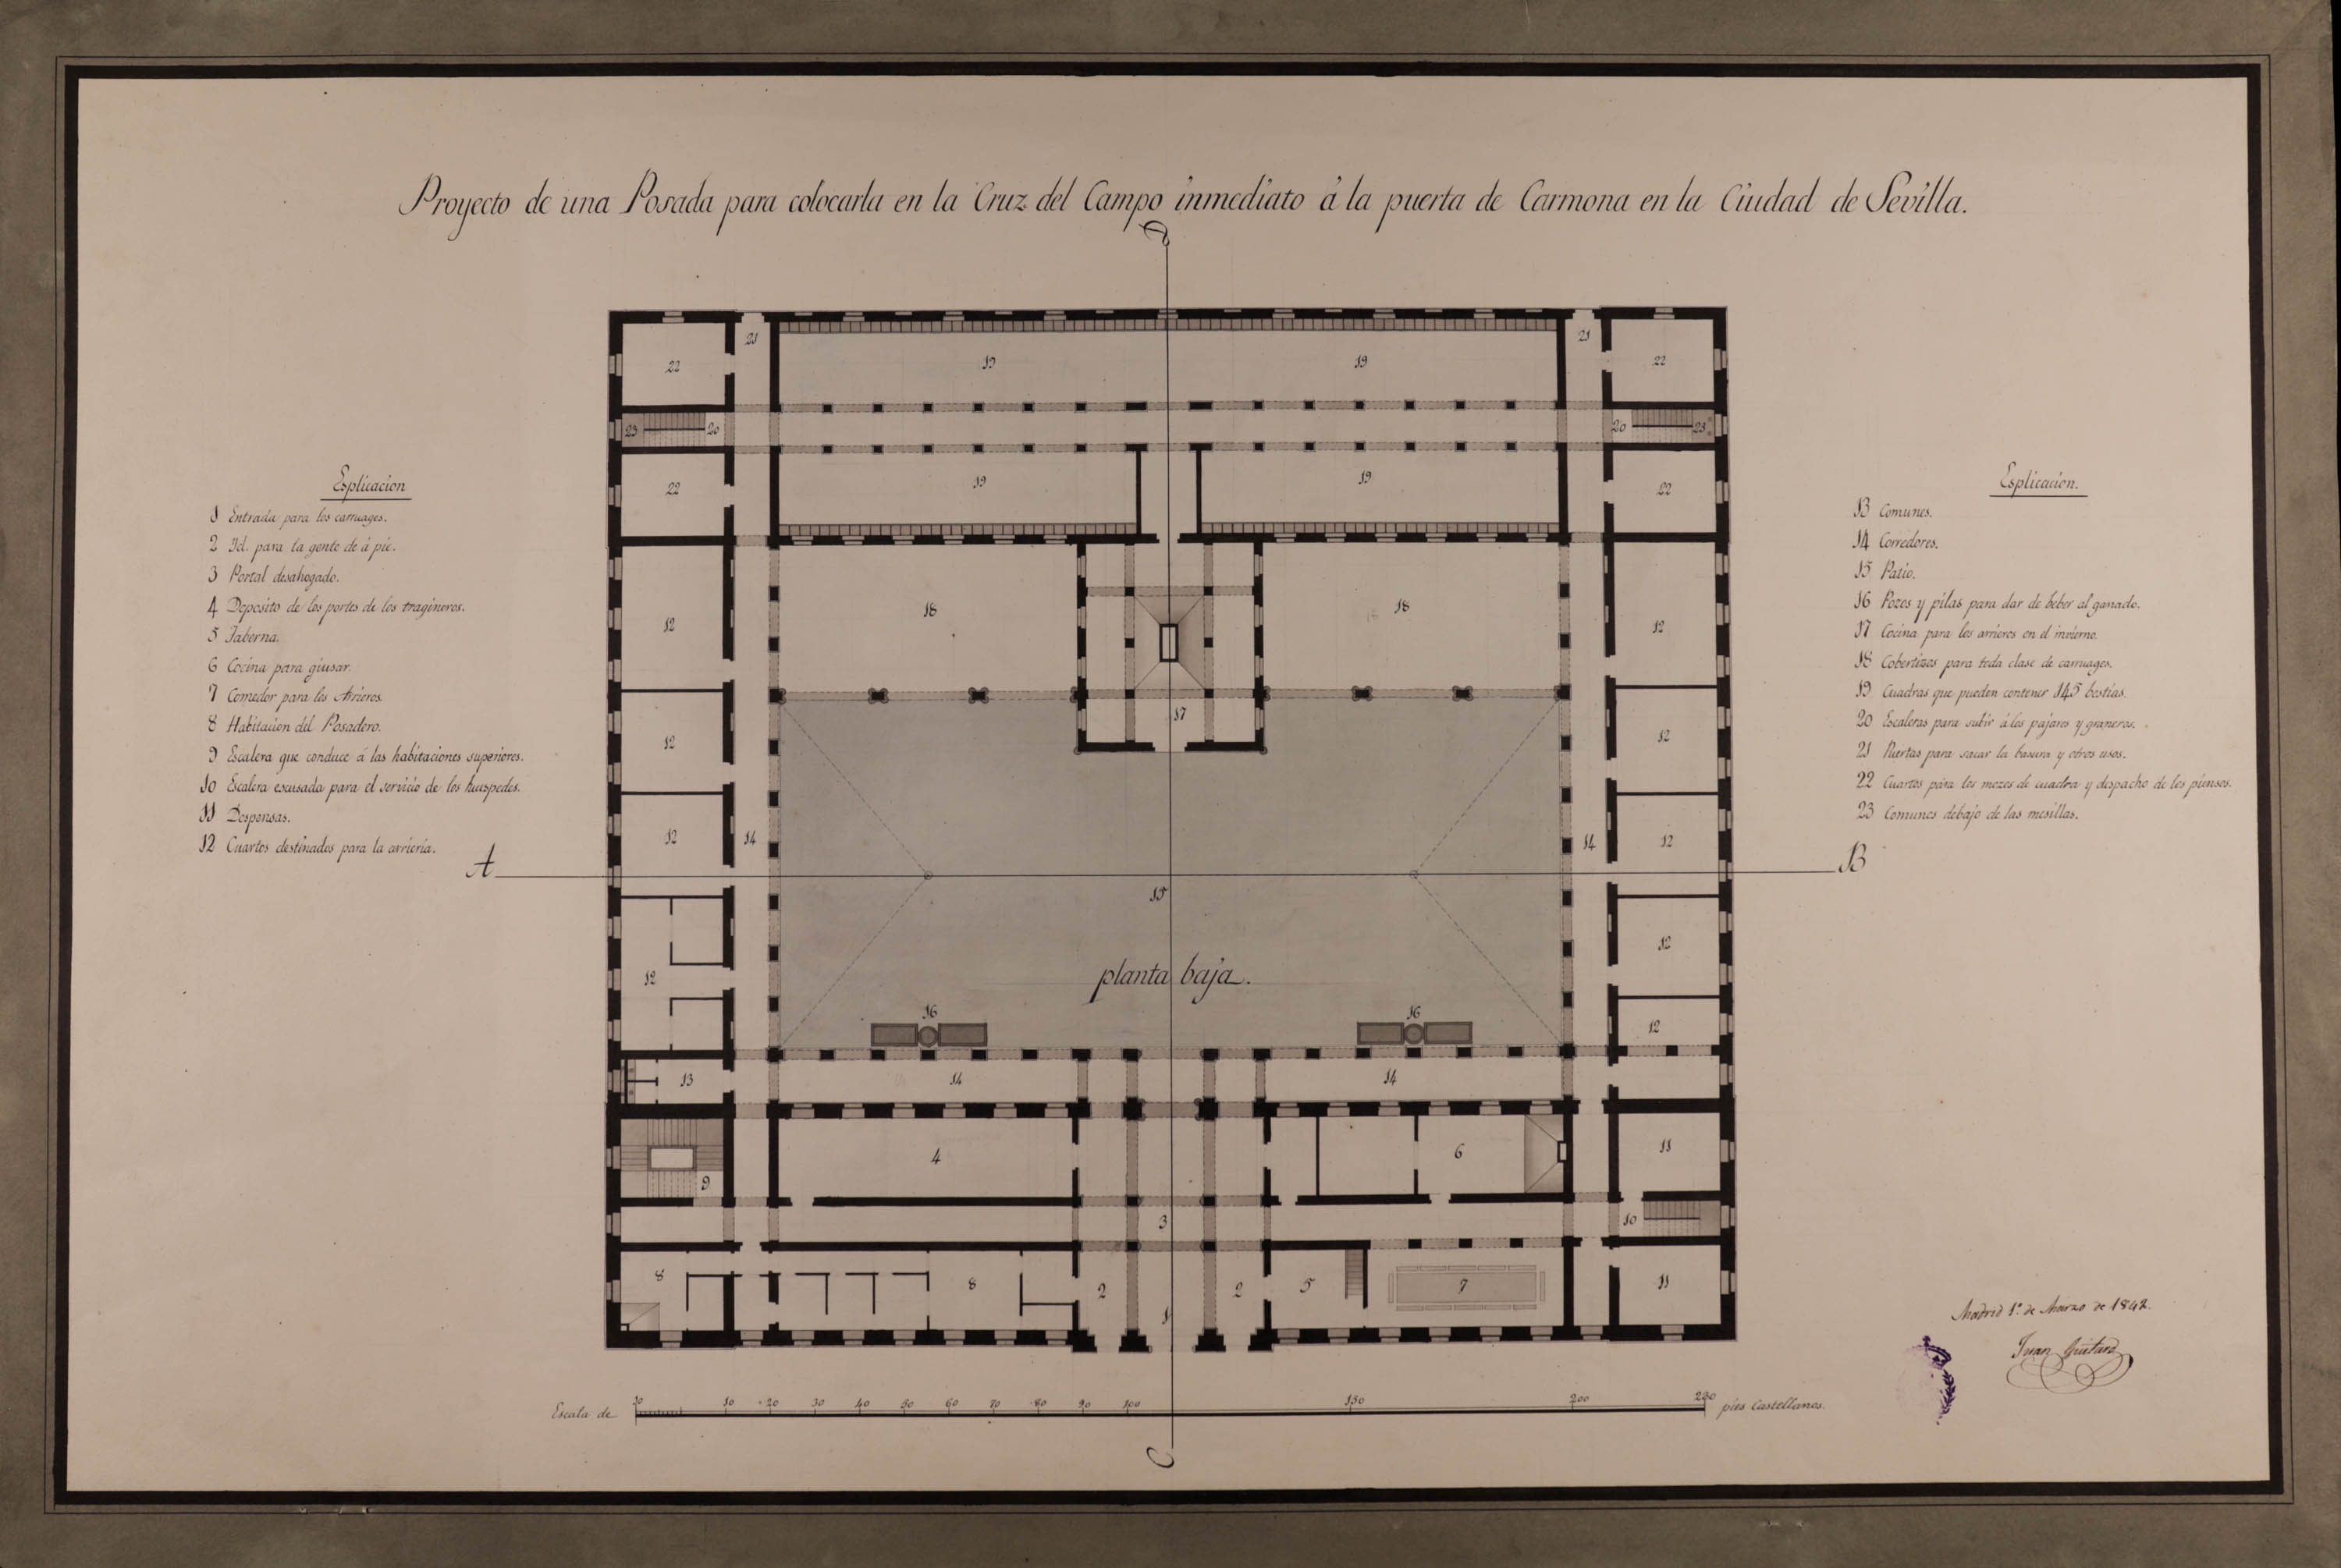 Proyecto de una Posada para colocarla en la Cruz del Campo inmediato á la puerta de Carmona en la Ciudad de Sevilla.
D
Esplicacion
1 Entrada para los carruages.
2 Id. para la gente de á pie.
3 Portal desahogado.
4 Deposito de los portes de los tragineros.
5 Taberna.
6 Cocina para guisar.
7 Comedor para los Arrieros.
8 Habitacion del Posadero.
9 Escalera que conduce á las habitaciones superiores.
10 Escalera escusada para el servicio de los huespedes.
11 Despensas.
12 Cuartos destinados para la arrieria.
Esplicacion.
13 Comunes.
14 Corredores.
15 Patio.
16 Pozos y pilas para dar de beber al ganado.
17 Cocina para los arrieros en el invierno.
18 Cobertizos para toda clase de carruages.
19 Cuadras que pueden contener 145 bestias.
20 Escaleras para subir á los pajares y graneros.
21 Puertas para sacar la basura y otros usos.
22 Cuartos para los mozos de cuadra y despacho de los piensos.
23 Comunes debajo de las mesillas.
21 21
22 19 19 22
23 20 20 23
22 19 19 22
12 18 18 12
17
12 12
12 14 14 12
A B
15
12
12 planta baja.
16 16
12
13 14 14
4 6 11
9
3 10
8 8 2 2 5 7 11
1
Madrid 1º de Marzo de 1842.
Juan Guitard
10 10 20 30 40 50 60 70 80 90 100 150 200 230
Escala de pies Castellanos.
C